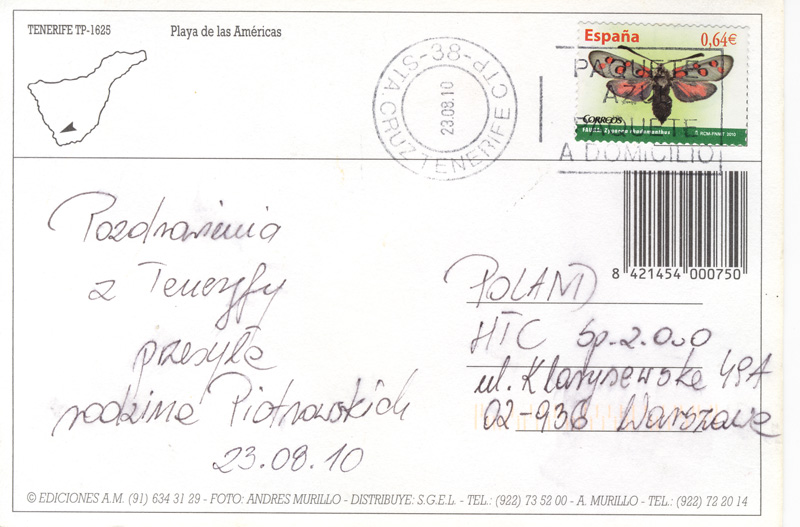 TENERIFE TP-1625
Playa de las Américas
38-STA CRUZ TENERIFE CTP-
23.08.10
España
0,64€
PAQUETE
AZUL
PAQUETE
A DOMICILIO
CORREOS
8 421454 000750
Pozdrowienia
z Teneryfy
przesyła
rodzina Piotrowskich
23.08.10
POLAND
HTC Sp. z o.o
ul. Klarysewska 49A
02-936 Warszawa
© EDICIONES A.M. (91) 634 31 29 - FOTO: ANDRES MURILLO - DISTRIBUYE: S.G.E.L. - TEL.: (922) 73 52 00 - A. MURILLO - TEL.: (922) 72 20 14